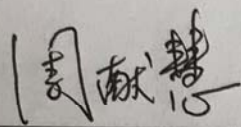 周献慧